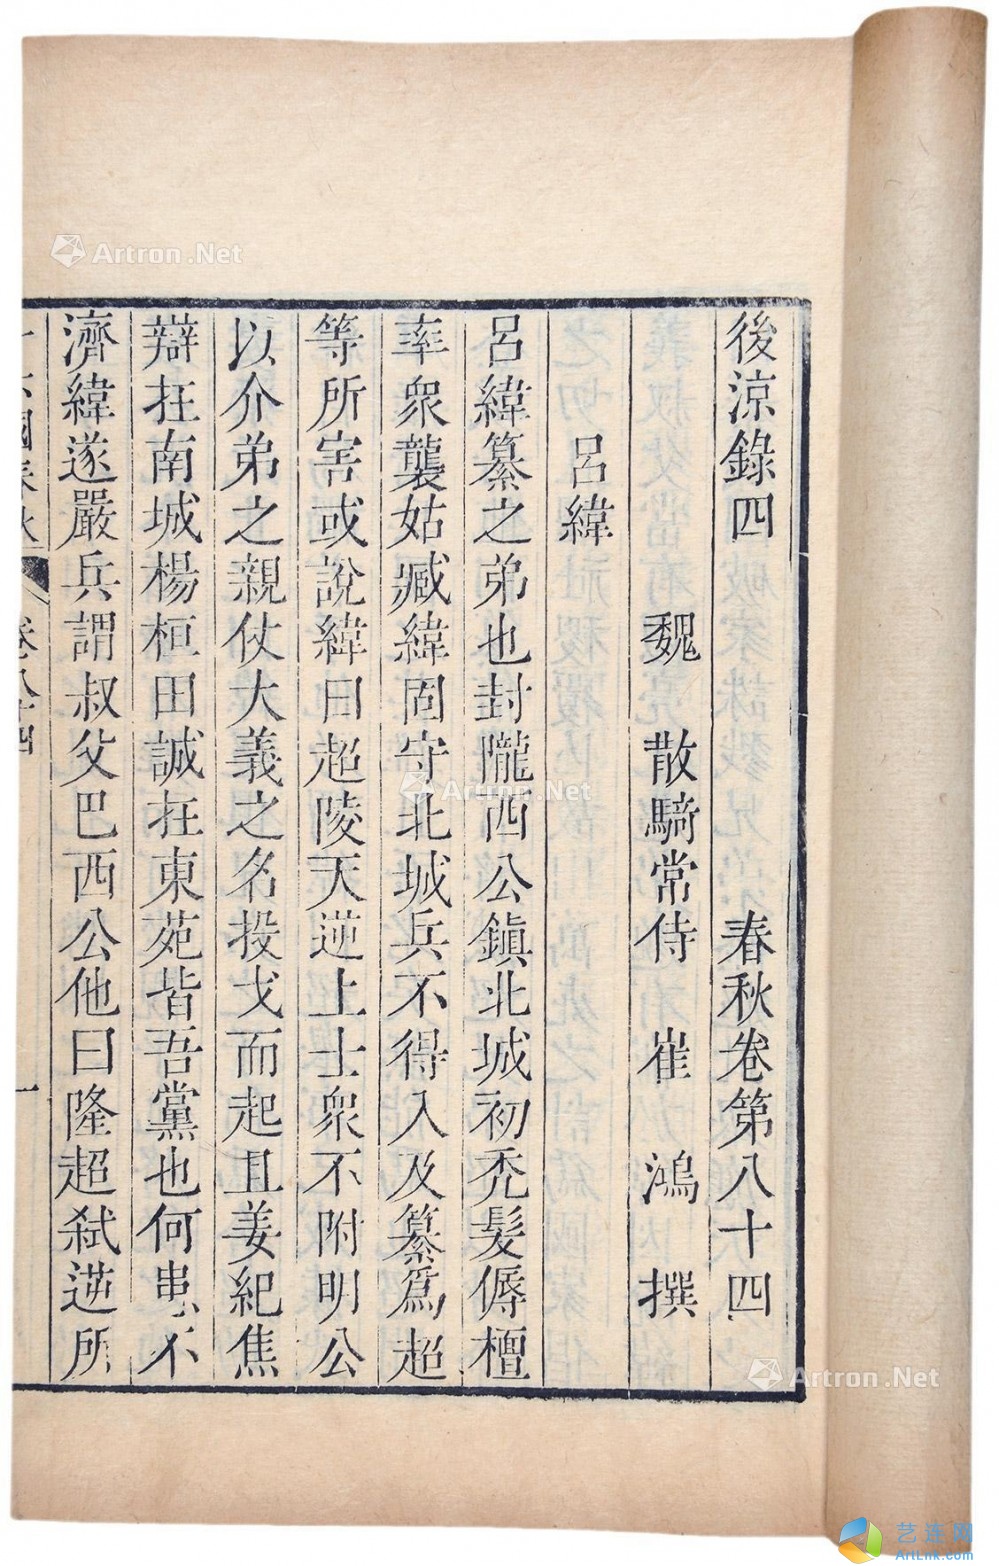 後涼錄四 春秋卷第八十四
魏 散騎常侍 崔 鴻 撰
呂緯
呂緯纂之弟也封隴西公鎮北城初禿髮傉檀
率衆襲姑臧緯固守北城兵不得入及纂爲超
等所害或說緯曰超陵天逆上士衆不附明公
以介弟之親仗大義之名投戈而起且姜紀焦
辯在南城楊桓田誠在東苑皆吾黨也何患不
濟緯遂嚴兵謂叔父巴西公他曰隆超弒逆所
十六國春秋 卷八十四 一
Artron.Net
Artron.Net
Artron.Net
艺连网
ArtLnk.com